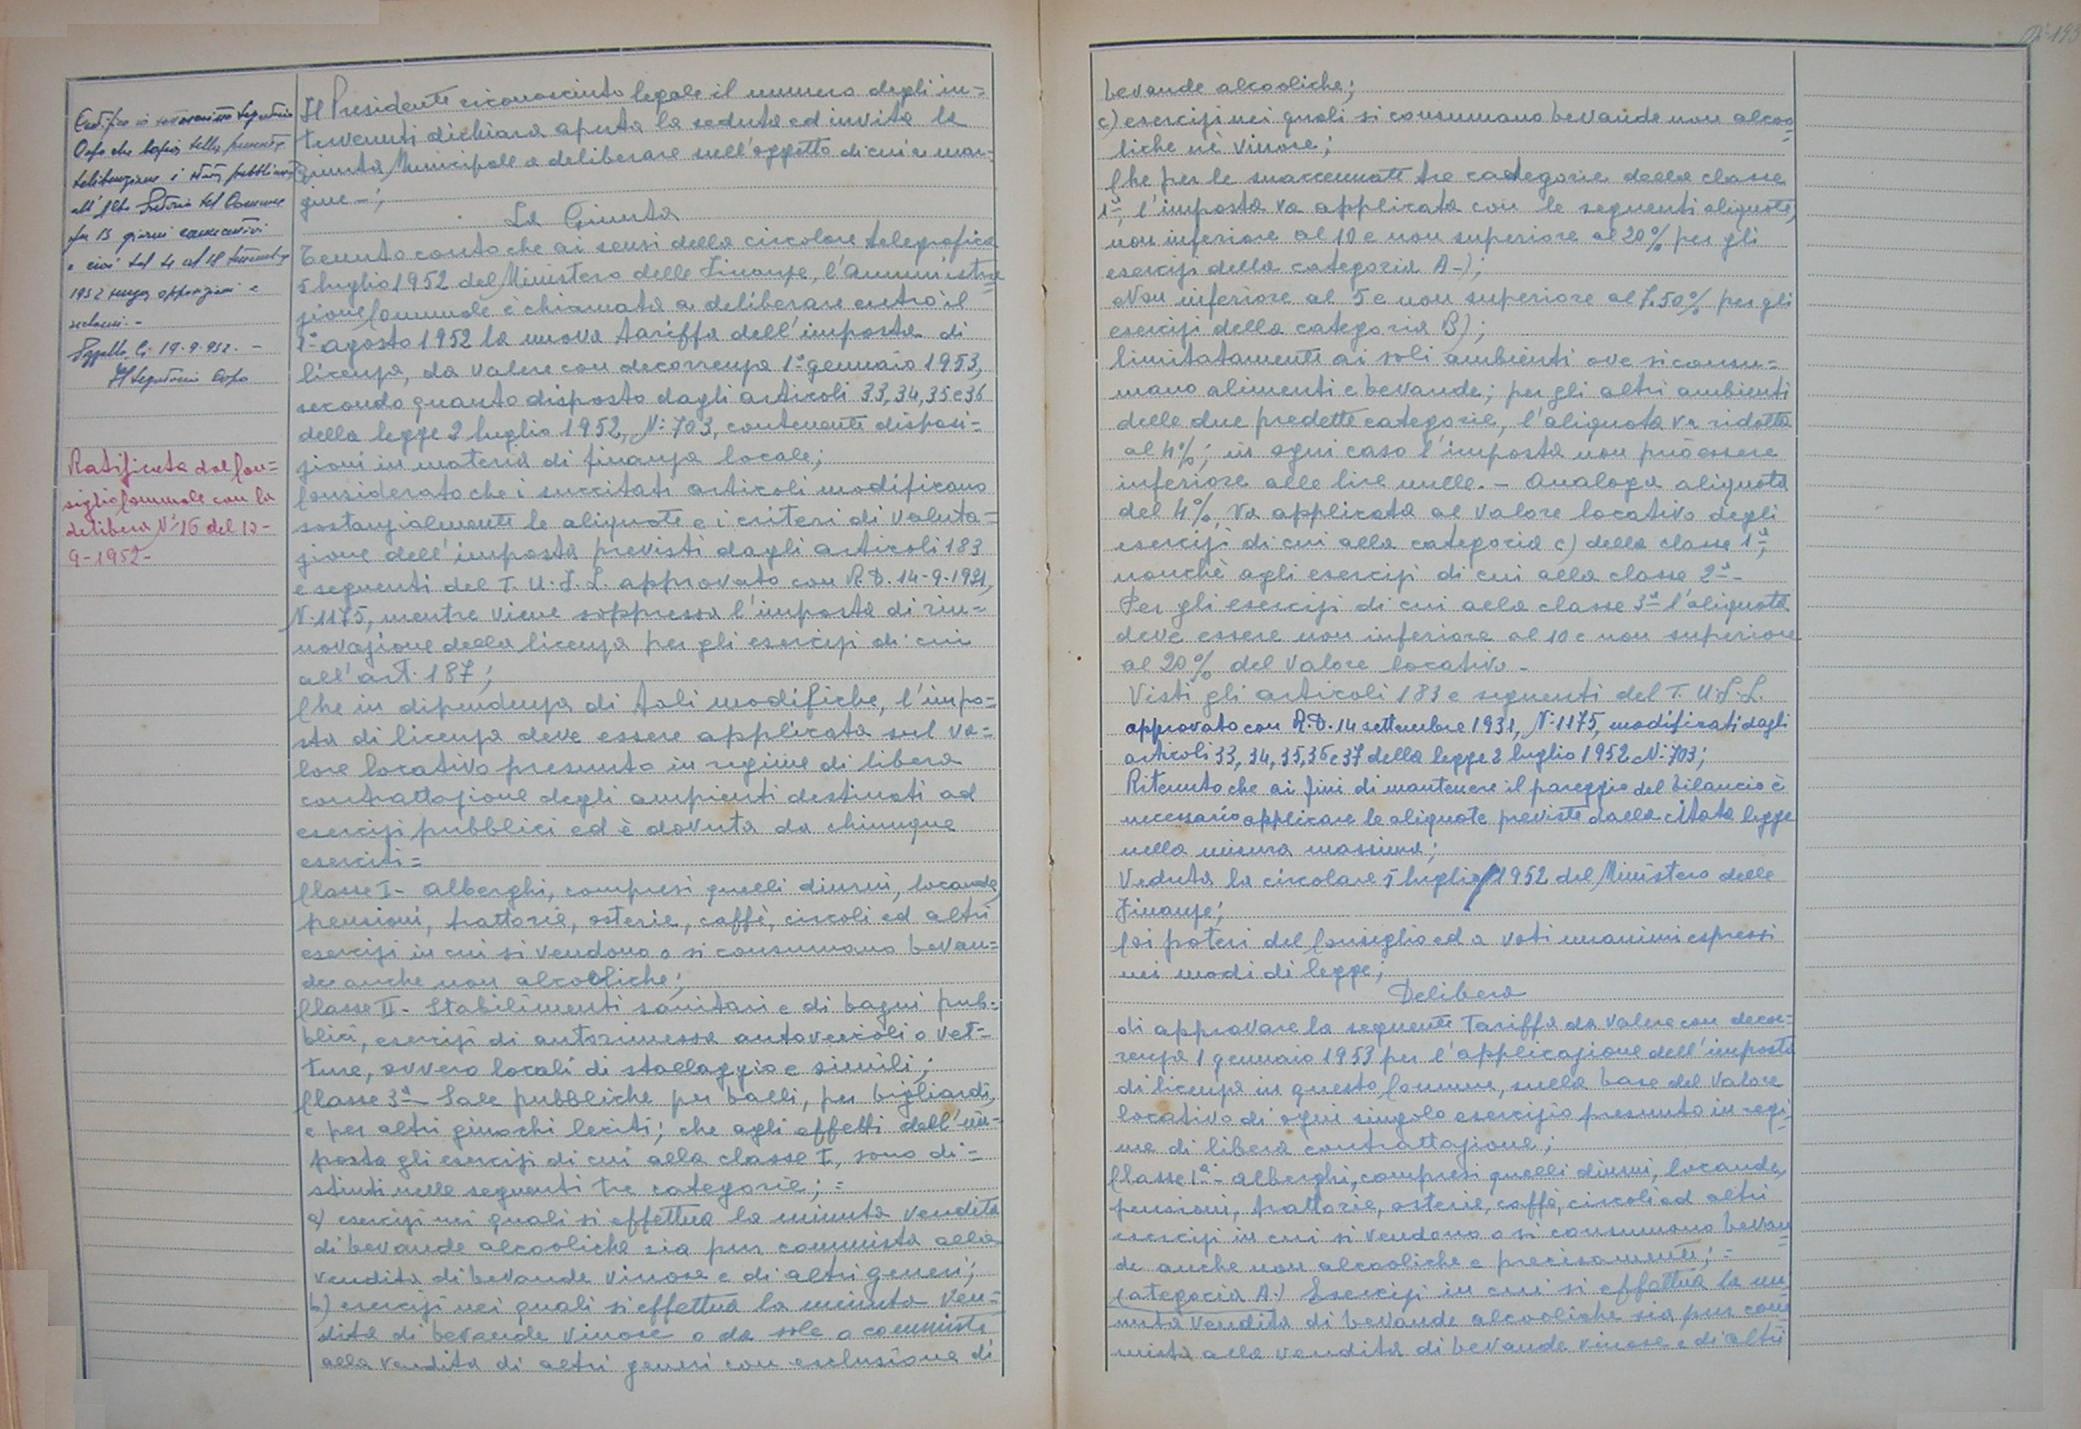 Certifico io sottoscritto Segretario
Capo che copia della presente
deliberazione è stata pubblicata
all'Albo Pretorio del Comune
per 15 giorni consecutivi
e cioè dal 4 al 18 settembre
1952 senza opposizioni e
reclami.-
lì 19-9-952. -
Il Segretario Capo
Ratificata dal Con=
siglio Comunale con la
delibera N: 16 del 10-
9-1952-
Il Presidente riconosciuto legale il numero degli in=
tervenuti dichiara aperta la seduta ed invita la
Giunta Municipale a deliberare sull'oggetto di cui a mar=
gine-;
La Giunta
Tenuto conto che ai sensi della circolare telegrafica
5 luglio 1952 del Ministero delle Finanze, l'Amministra=
zione Comunale è chiamata a deliberare entro il
1° agosto 1952 la nuova tariffa dell'imposta di
licenza, da valere con decorrenza 1° gennaio 1953,
secondo quanto disposto dagli articoli 33, 34, 35 e 36
della legge 2 luglio 1952, N: 703, contenente disposi=
zioni in materia di finanza locale;
Considerato che i succitati articoli modificano
sostanzialmente le aliquote e i criteri di valuta=
zione dell'imposta previsti dagli articoli 183
e seguenti del T. U. F. L. approvato con R.D. 14-9-1931,
N. 1175, mentre viene soppressa l'imposta di rin=
novazione della licenza per gli esercizi di cui
all'art. 187;
Che in dipendenza di tali modifiche, l'impo=
sta di licenza deve essere applicata sul va=
lore locativo presunto in regime di libera
contrattazione degli ampienti destinati ad
esercizi pubblici ed è dovuta da chiunque
eserciti=
Classe I- alberghi, compresi quelli diurni, locande,
pensioni, trattorie, osterie, caffè, circoli ed altri
esercizi in cui si vendono o si consumano bevan=
de anche non alcooliche;
Classe II- Stabilimenti sanitari e di bagni pub=
blici, esercizi di autorimessa autoveicoli o vet=
ture, ovvero locali di stallaggio e simili;
Classe 3ª- Sale pubbliche per balli, per bigliardi,
e per altri giuochi leciti; che agli effetti dell'im=
posta gli esercizi di cui alla classe I, sono di=
stinti nelle seguenti tre categorie; =
a) esercizi nei quali si effettua la minuta vendita
di bevande alcooliche sia pur commista alla
vendita di bevande vinose e di altri generi;
b) esercizi nei quali si effettua la minuta ven=
dita di bevande vinose o da sole o commiste
alla vendita di altri generi con esclusione di
bevande alcooliche;
c) esercizi nei quali si consumano bevande non alcoo=
liche nè vinose;
Che per le suaccennate tre categorie della classe
1ª, l'imposta va applicata con le seguenti aliquote,
non inferiore al 10 e non superiore al 20% per gli
esercizi della categoria A-);
Non inferiore al 5 e non superiore al 7.50% per gli
esercizi della categoria B);
limitatamente ai soli ambienti ove si consu=
mano alimenti e bevande; per gli altri ambienti
delle due predette categorie, l'aliquota va ridotta
al 4%; in ogni caso l'imposta non può essere
inferiore alle lire mille. - Analoga aliquota
del 4%, va applicata al valore locativo degli
esercizi di cui alla categoria c) della classe 1ª,
nonchè agli esercizi di cui alla classe 2ª-
Per gli esercizi di cui alla classe 3ª l'aliquota
deve essere non inferiore al 10 e non superiore
al 20% del valore locativo-
Visti gli articoli 183 e seguenti del T. U. F. L.
approvato con R.D. 14 settembre 1931, N: 1175, modificati dagli
articoli 33, 34, 35, 36 e 37 della legge 2 luglio 1952 N: 703;
Ritenuto che ai fini di mantenere il pareggio del bilancio è
necessario applicare le aliquote previste dalla citata legge
nella misura massima;
Veduta la circolare 5 luglio 1952 del Ministero delle
Finanze;
Coi poteri del Consiglio ed a voti unanimi espressi
nei modi di legge;
Delibera
di approvare la seguente tariffa da valere con decor=
renza 1 gennaio 1953 per l'applicazione dell'imposta
di licenza in questo Comune, sulla base del valore
locativo di ogni singolo esercizio presunto in regi=
me di libera contrattazione;
Classe 1ª- alberghi, compresi quelli diurni, locande,
pensioni, trattorie, osterie, caffè, circoli ed altri
esercizi in cui si vendono o si consumano bevan=
de anche non alcooliche e precisamente; =
Categoria A) Esercizi in cui si effettua la mi=
nuta vendita di bevande alcooliche sia pur com=
mista alla vendita di bevande vinose e di altri